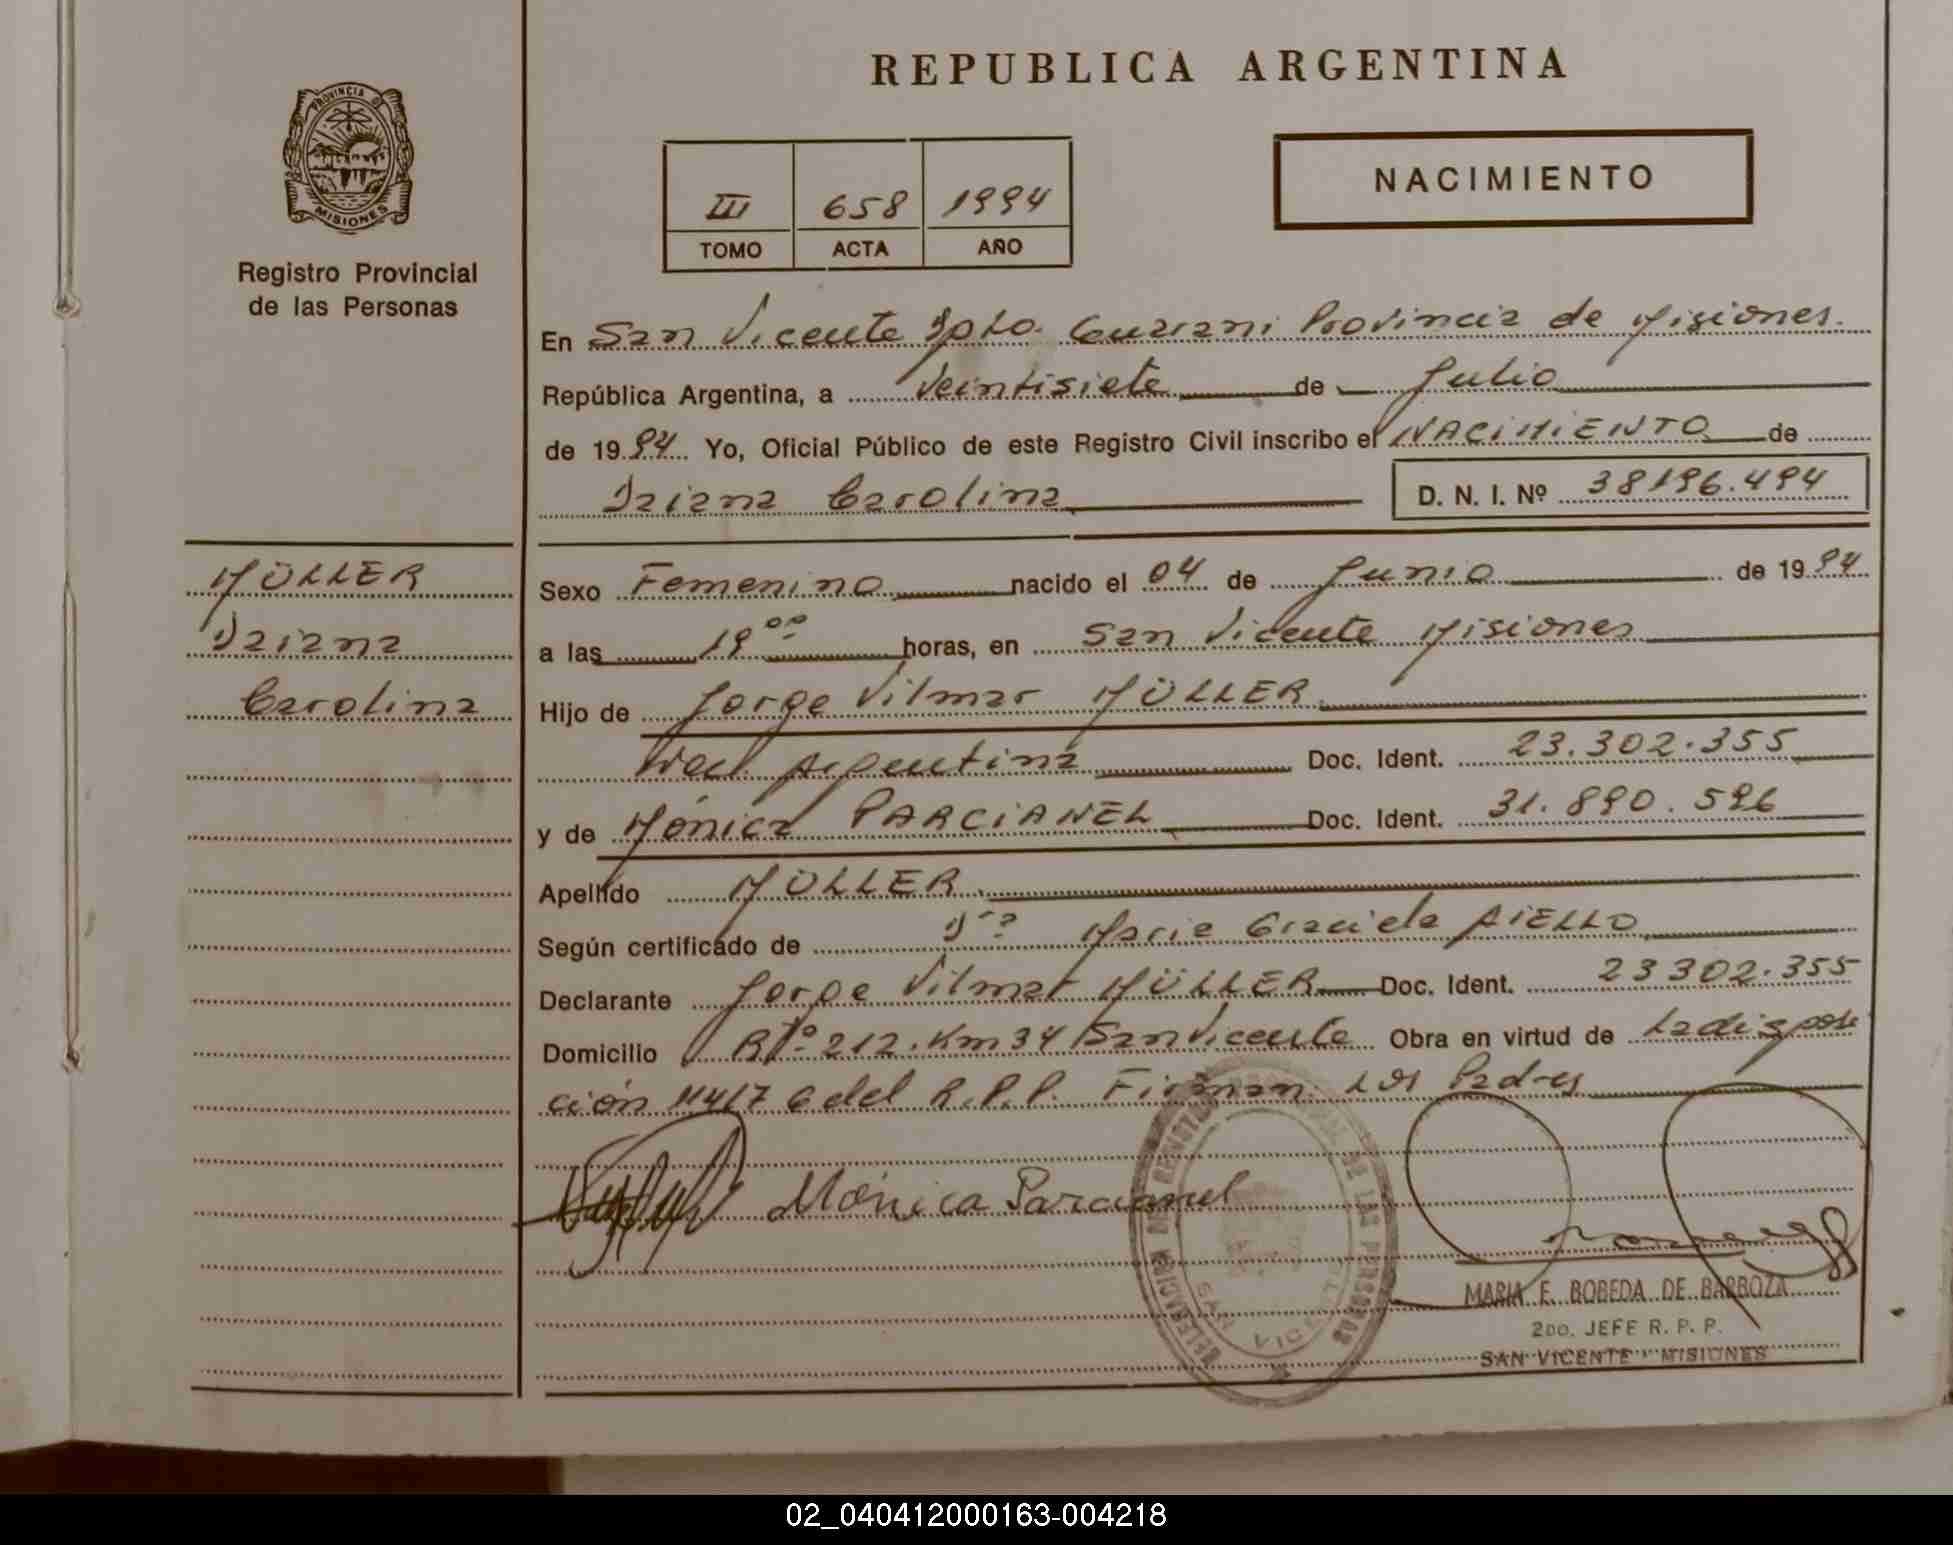 PROVINCIA DE
MISIONES
Registro Provincial
de las Personas
REPUBLICA ARGENTINA
III 658 1994
TOMO ACTA AÑO
NACIMIENTO
En San Vicente Dpto. Guarani Provincia de Misiones.
República Argentina, a Veintisiete de Julio
de 1994 Yo, Oficial Público de este Registro Civil inscribo el NACIMIENTO de
Daiana Carolina D. N. I. Nº 38196.494
MÜLLER
Daiana
Carolina
Sexo Femenino nacido el 04 de Junio de 1994
a las 19 00 horas, en San Vicente Misiones
Hijo de Jorge Vilmar MÜLLER
Nac. Argentina Doc. Ident. 23.302.355
y de Mónica PARCIANEL Doc. Ident. 31.890.596
Apellido MÜLLER
Según certificado de Dra Maria Graciela AIELLO
Declarante Jorge Vilmar MÜLLER Doc. Ident. 23302.355
Domicilio 212. Km 34 San Vicente Obra en virtud de La dispos
ción del R.P.P. Firman: Los Padres
Mónica Parcianel
DELEGACION DEL REGISTRO PROVINCIAL DE LAS PERSONAS
SAN VICENTE
MARIA E. BOBEDA DE BARBOZA
2DO. JEFE R. P. P.
SAN VICENTE - MISIONES
02_040412000163-004218